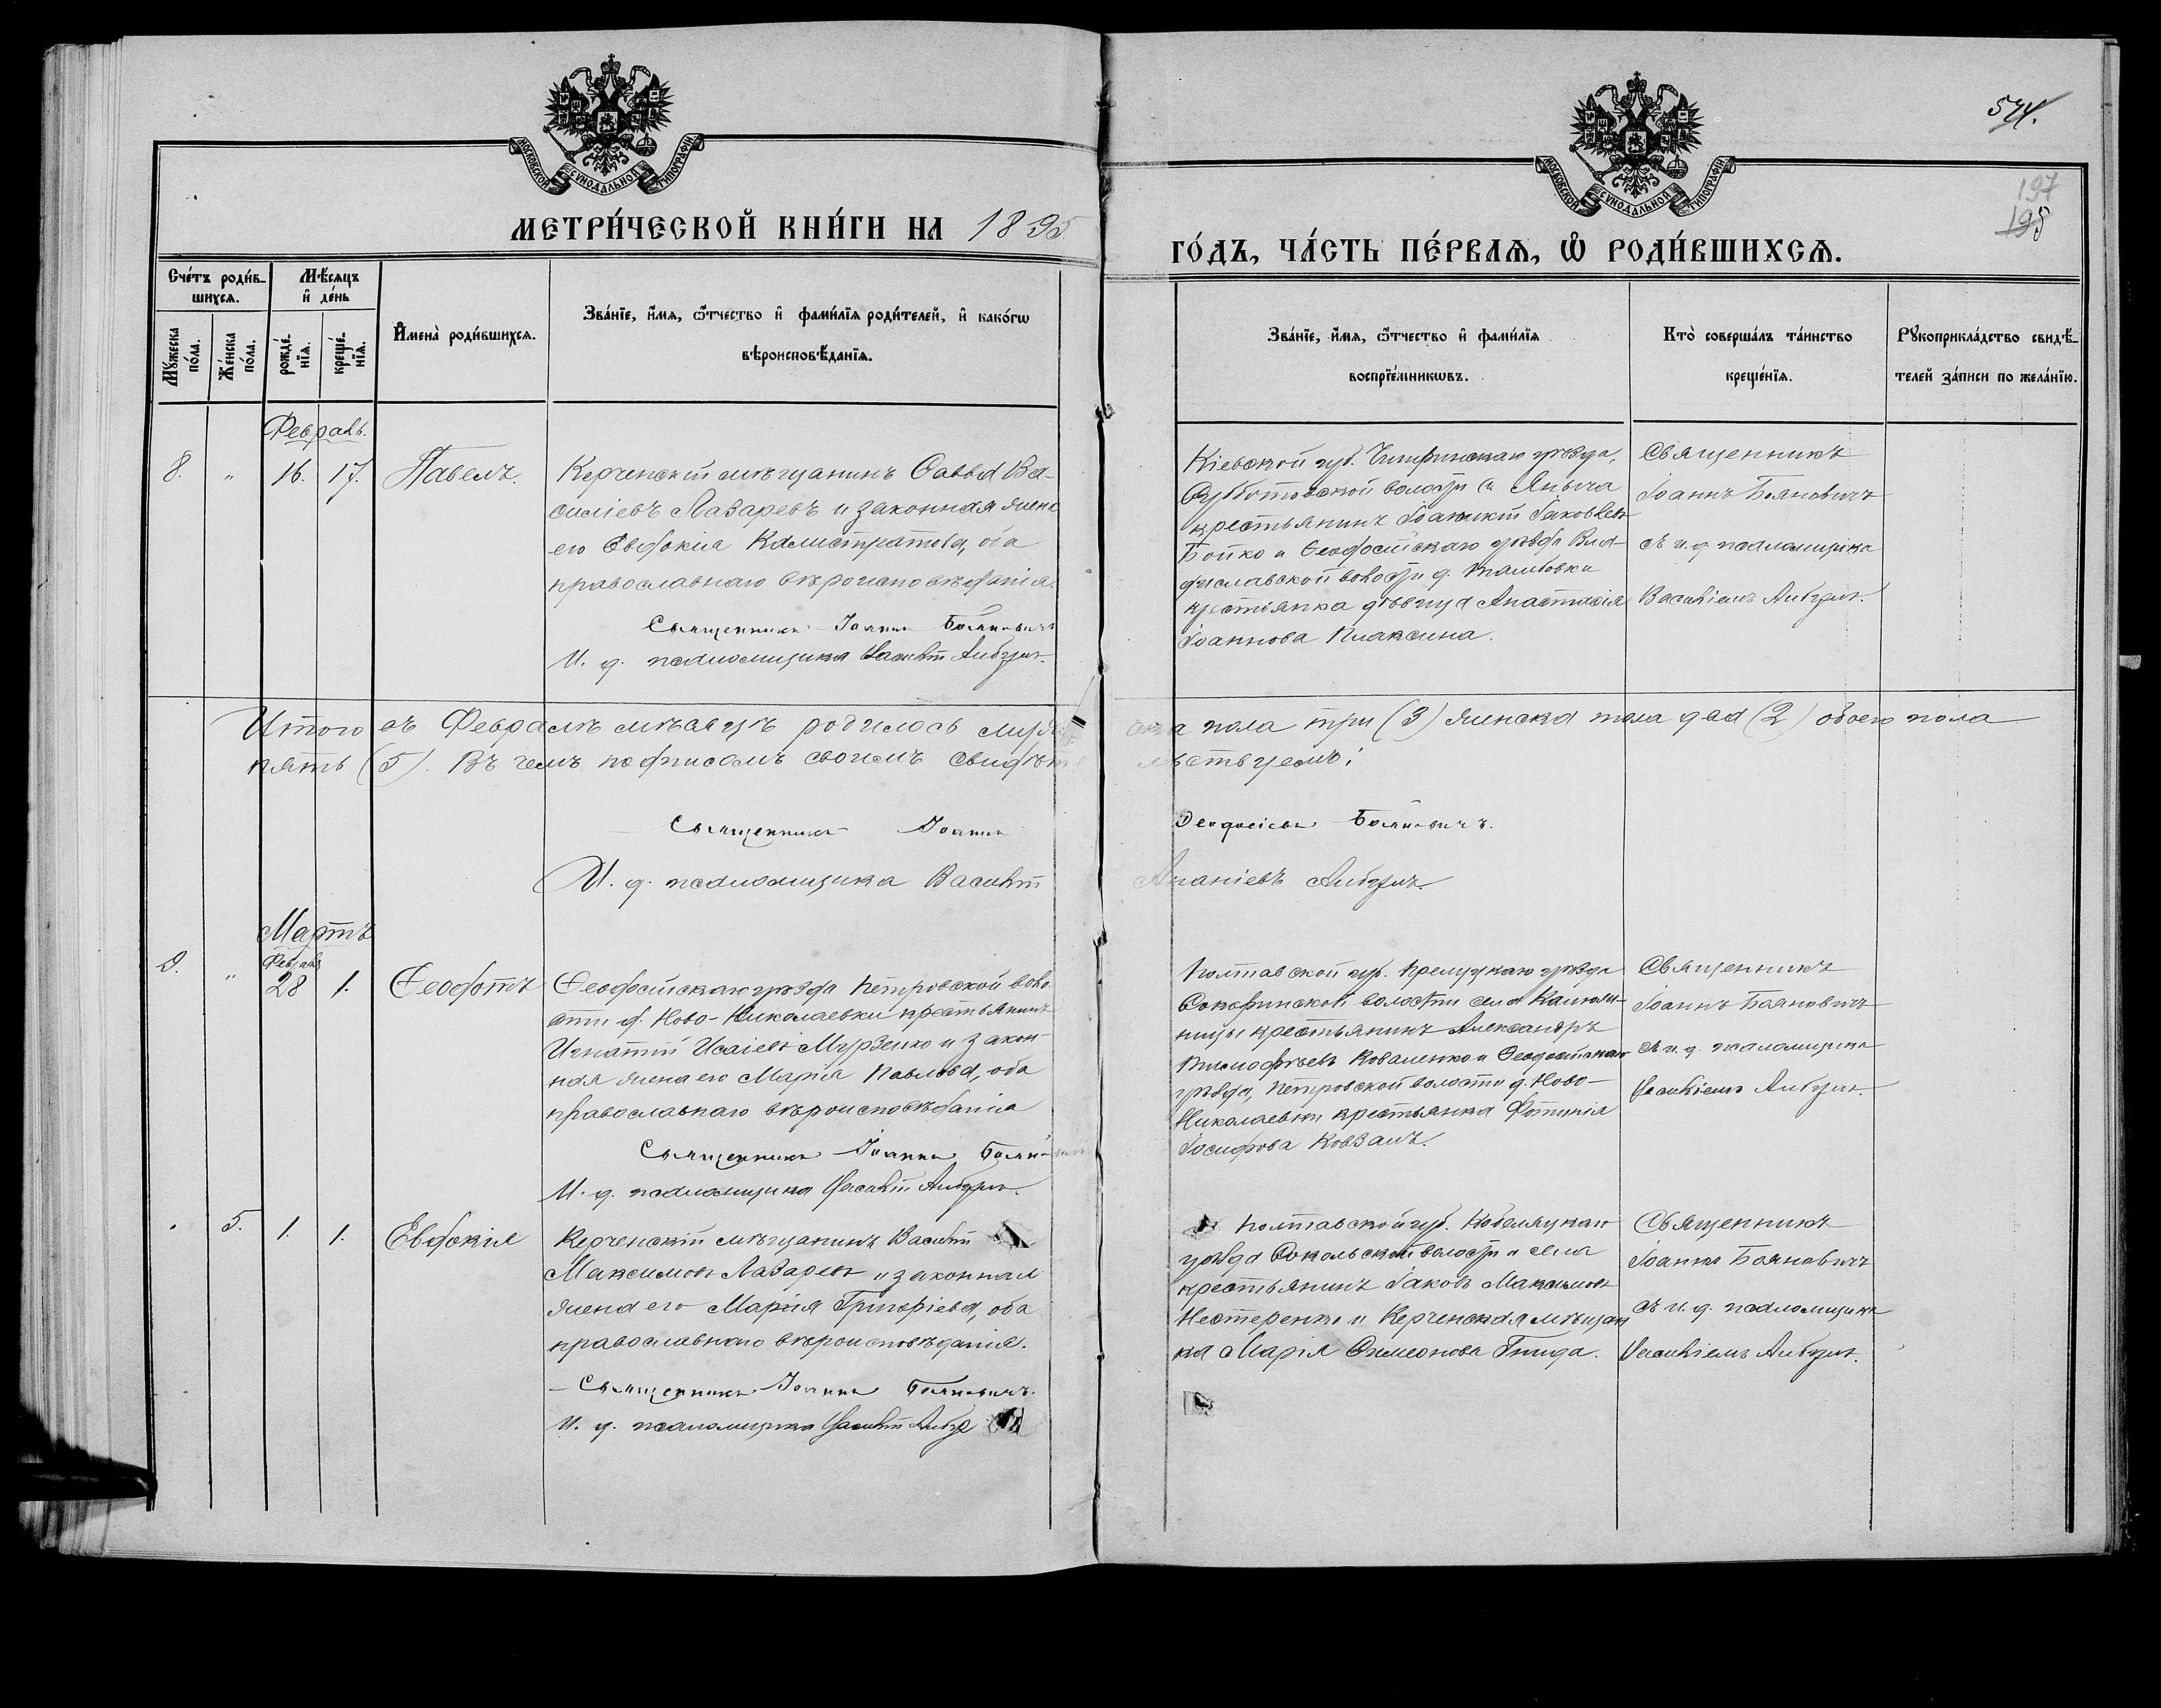 574.
197
195
МОСКОВСКОЙ СѴНОДАЛЬНОЙ ТИПОГРАФІИ
МОСКОВСКОЙ СѴНОДАЛЬНОЙ ТИПОГРАФІИ
МЕТРИ́ЧЕСКОЙ КНИ́ГИ НА 1895
ГО́ДЪ, ЧА́СТЬ ПЕ́РВАѦ, Ѡ҆ РОДИ́ВШИХСѦ.
Сче́тъ роди́в-
шихся.
Мѣ́сяцъ
и҆ де́нь
Мꙋ́жеска по́ла.
Же́нска по́ла.
рожде́нїя.
креще́нїя.
И҆мена̀ роди́вшихся.
Зва́нїе, и҆́мя, ѻ҆́тчество и҆ фами́лїя роди́телей, и҆ како́гѡ
вѣроисповѣ́данїя.
Зва́нїе, и҆́мя, ѻ҆́тчество и҆ фами́лїя
воспрїе́мникѡвъ.
Кто̀ соверша́лъ та́инство
креще́нїя.
Рꙋкоприкла́дство свидѣ́-
телей за́писи по жела́нїю.
Февраль.
8. " 16. 17. Павелъ.
Керченскій мѣщанинъ Савва Ва-
силіевъ Лазаревъ и законная жена
его Евдокіа Калистратова, оба
православнаго вѣроисповѣданія.
Священникъ Іоаннъ Бояновичъ
И. д. псаломщика Василій
Кіевской губ. Чигиринскаго уѣзда,
Субботовской волости с.
крестьянинъ Іоанникій Іаковлевъ
Бойко и Ѳеодосійскаго уѣзда Вла-
диславской волости д.
крестьянка дѣвица Анастасія
Іоаннова Плаксина.
Священникъ
Іоаннъ Бояновичъ
съ и. д. псаломщика
Василіемъ
Итого въ Февралѣ мѣсяцѣ родилось
ска пола три (3) женска пола два (2) обоего пола
пять (5). Въ чемъ подписомъ своимъ свидѣте
льствуемъ:
Священникъ Іоаннъ
Ѳеодосіевъ Бояновичъ.
И. д. псаломщика Василій
Ананіевъ
Мартъ
Февраль
9. " 28 1. Ѳеодотъ
Ѳеодосійскаго уѣзда Петровской воло
сти д. Ново-Николаевки крестьянинъ
Игнатій Исаіевъ Мурзенко и закон-
ная жена его Марія Павлова, оба
православнаго вѣроисповѣданіа
Священникъ Іоаннъ Бояновичъ
И. д. псаломщика Василій
Полтавской губ. уѣзда
волости села
крестьянинъ Александръ
Тимофѣевъ Коваленко и Ѳеодосійскаго
уѣзда, Петровской волости д. Ново-
Николаевки крестьянка Фотинія
Іосифова Ковзанъ.
Священникъ
Іоаннъ Бояновичъ
съ и. д. псаломщика
Василіемъ
. 5. 1. 1. Евдокия
Керченскій мѣщанинъ Василій
Максимовъ Лазаревъ и законная
жена его Мария Григоріева, оба
православнаго вѣроисповѣданія.
Священникъ Іоаннъ Бояновичъ.
И. д. псаломщика Василій
Полтавской губ. Кобеляцкаго
уѣзда Сокольской волости и села
крестьянинъ Іаковъ Максимовъ
Нестеренко и Керченская мѣщан
ка Марія Симеонова Гнида.
Священникъ
Іоаннъ Бояновичъ
съ и. д. псаломщика
Василіемъ